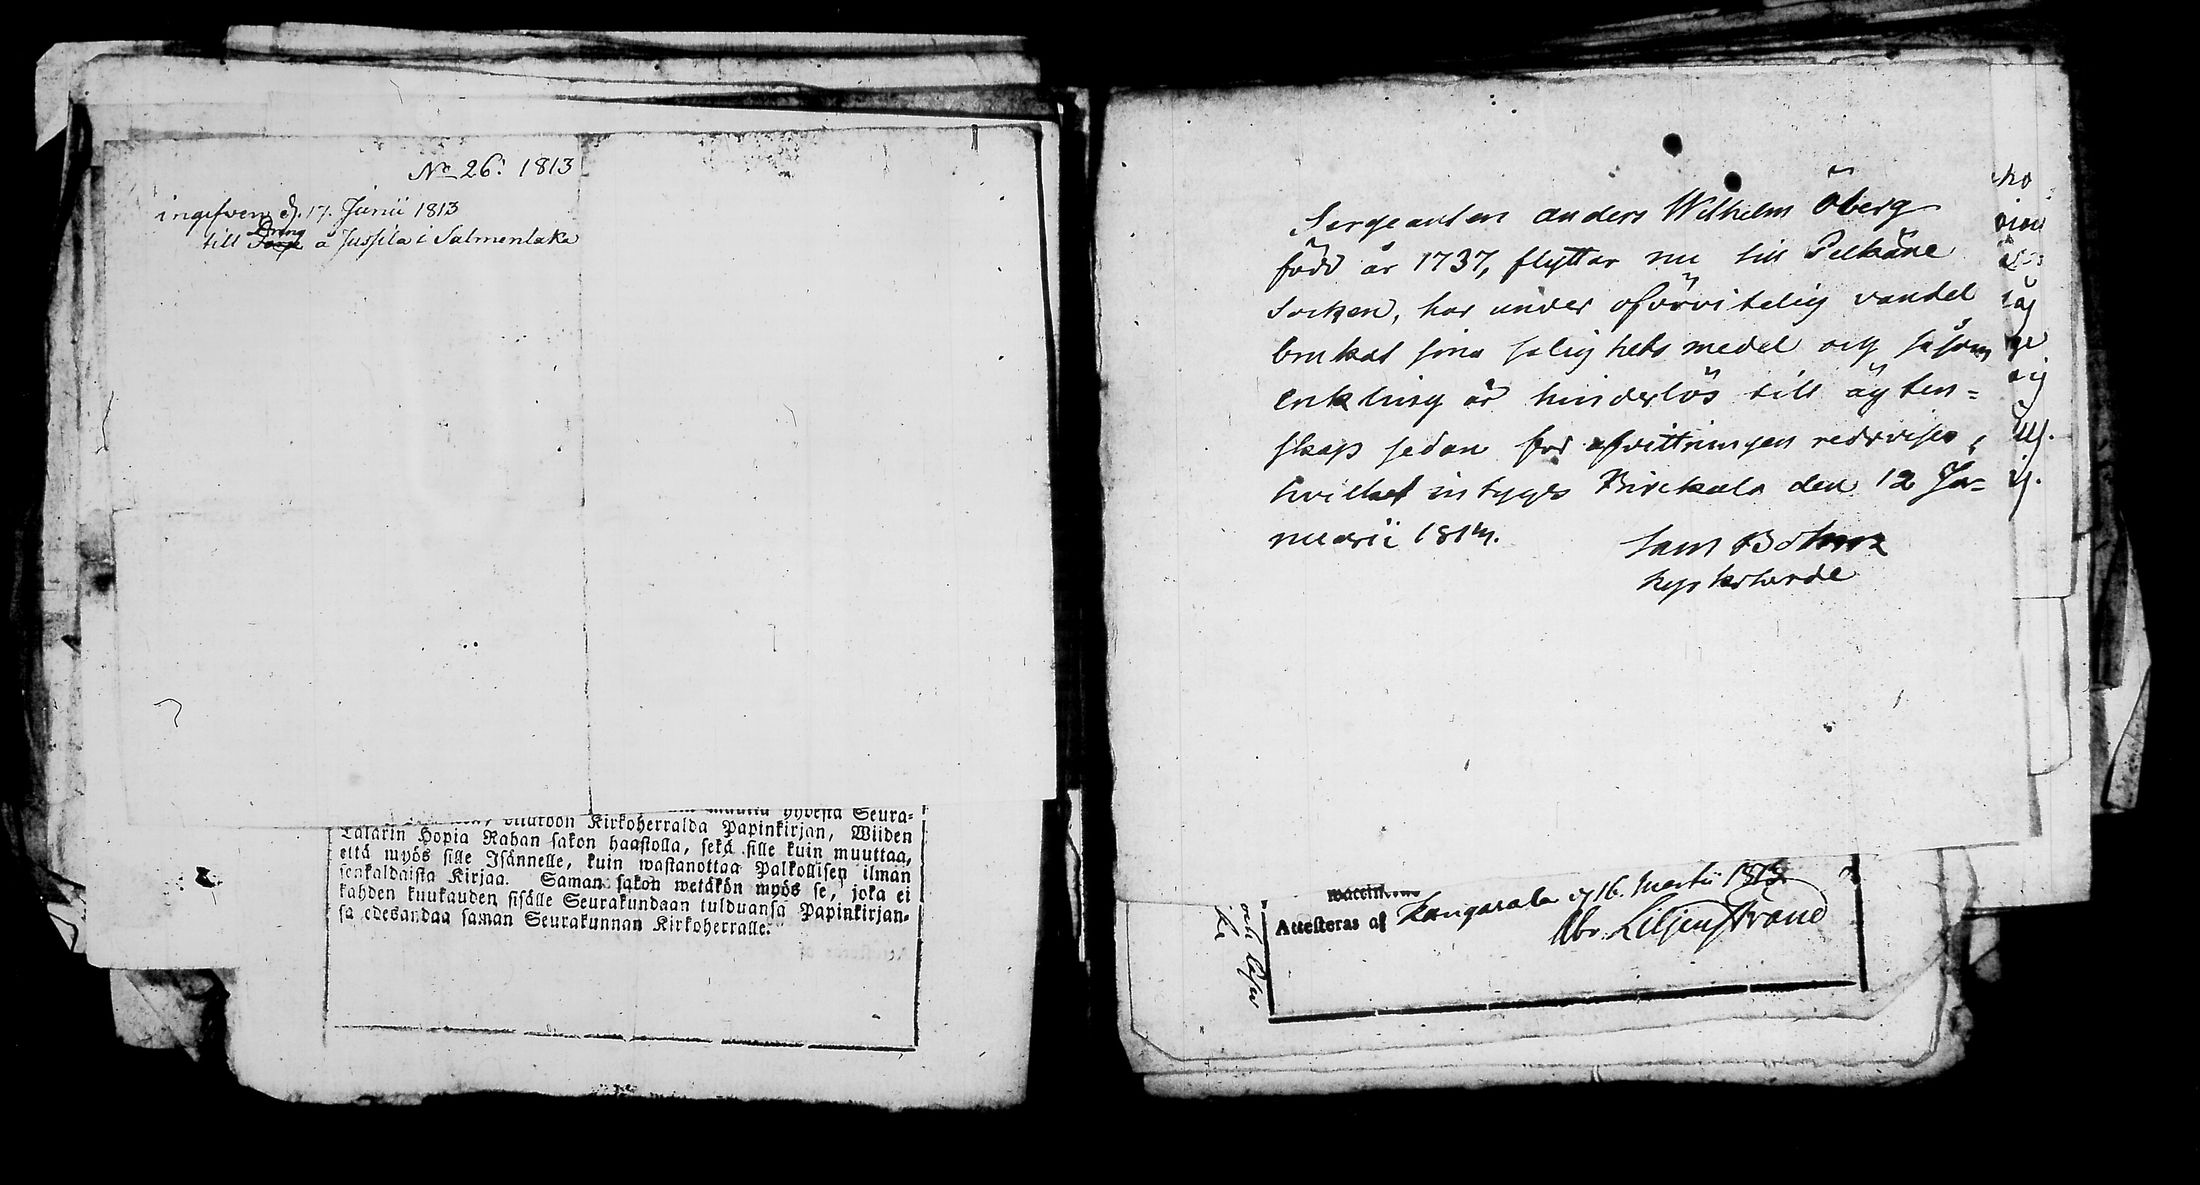 No 26. 1813
ingifven d. 17. Junii 1813
till Dräng å Jussila i Salmentaka
muutta yhdestä Seura-
Kirkoherralda Papinkirjan, Wiiden
Talarin Hopia Rahan sakon haastolla, sekä sille kuin muuttaa,
että myös sille Isännelle, kuin wastanottaa Palkollisen ilman
senkaldaista Kirjaa. Saman sakon wetäkön myös se, joka ei
kahden kuukauden sisälle Seurakundaan tulduansa Papinkirjan-
sa edesandaa saman Seurakunnan Kirkoherralle.
Sergeanten Anders Wilhelm Öberg
född år 1737, flyttar nu till Pelkäne
Socken, har under oförvitelig vandel
brukat sina salighets medel och såsom
enkling är hinderlös till ägten-
skap sedan för afvittringen redovisas,
hvilket intygas Birckala den 12 Ja-
nuarii 1814.
Kyrkoherde
Attesteras af Kangasala d 16. Martii 1813
Abr. Liljenstrand